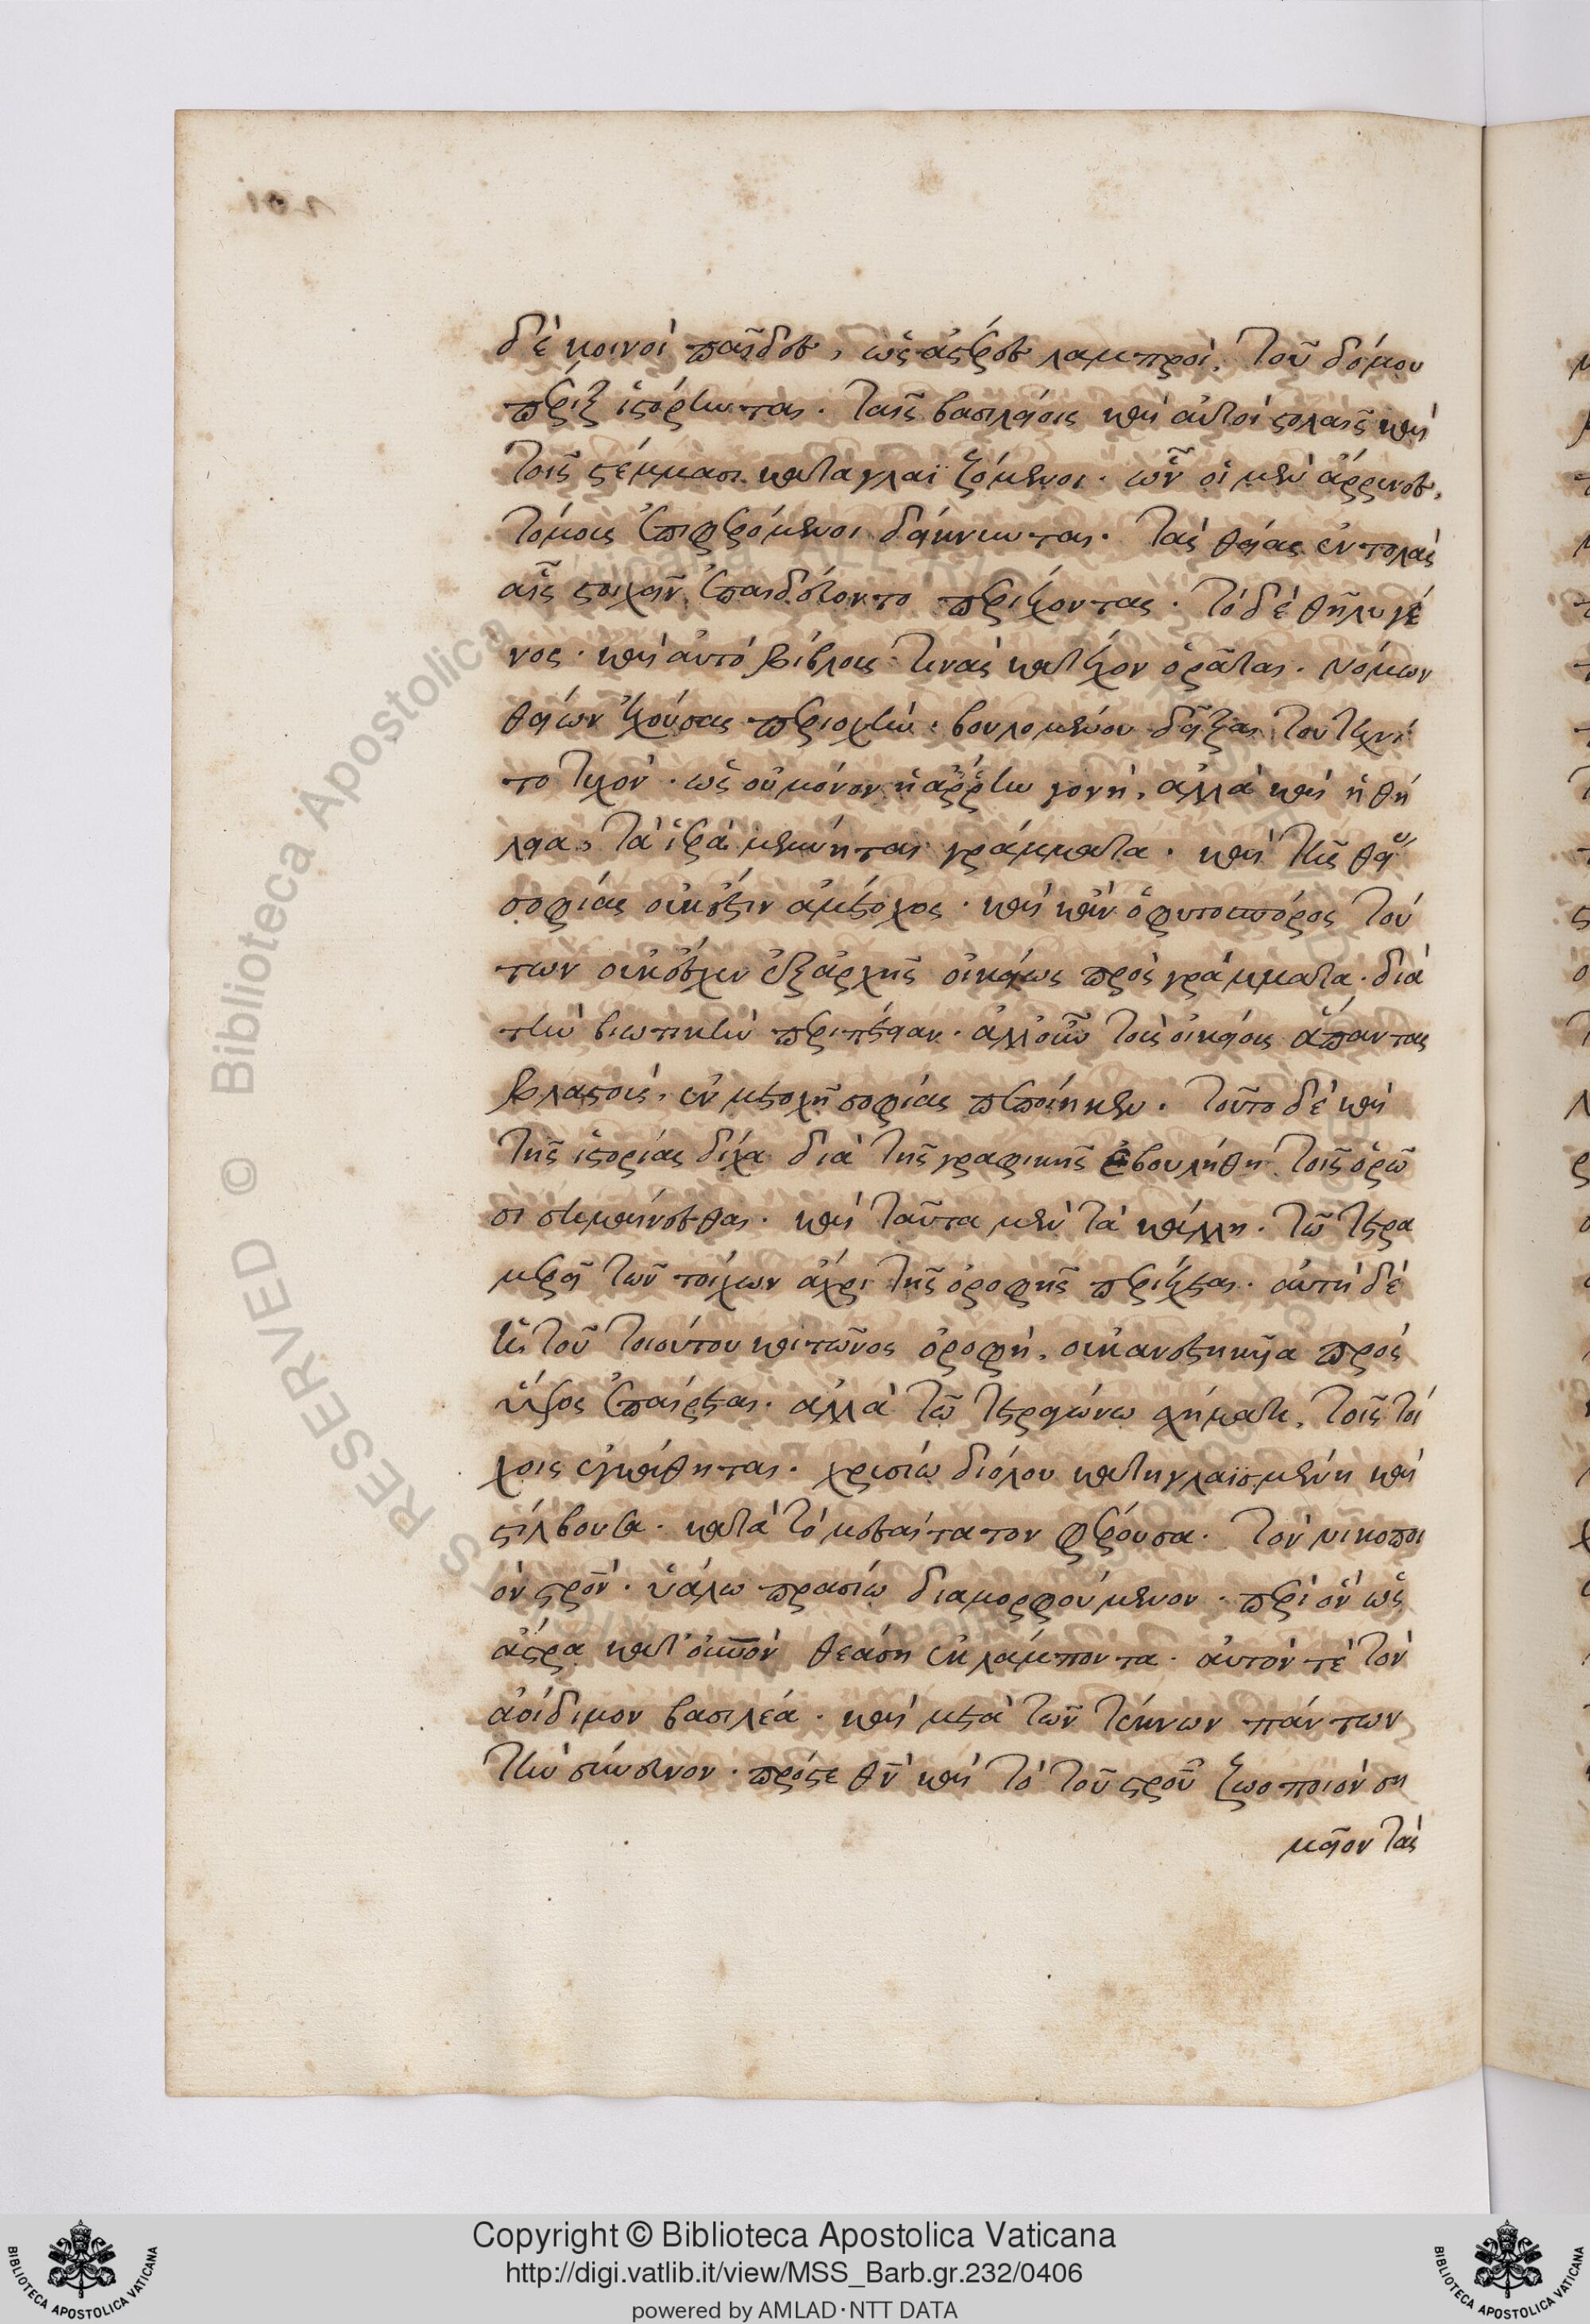 δὲ κοινοὶ παῖδες, ὡς ἀστέρες λαμπροὶ, τοῦ δόμου
πέριξ ἱστόρηνται. ταῖς βασιλείοις καὶ αὐτοὶ στολαῖς καὶ
τοῖς στέμμασι καταγλαϊζόμενοι. ὧν οἱ μὲν ἄρρενες,
τόμοις ἐπιφερόμενοι δείκνυνται. τὰς θείας ἐντολὰς
αἷς στοιχεῖν ἐπαιδεύοντο περιέχοντας. τὸ δὲ θῆλυ γέ
νος. καὶ αὐτὸ βίβλους τινὰς κατέχον ὁρᾶται. νόμων
θείων ἐχούσας περιοχήν. βουλομένου δεῖξαι τοῦ τεχνί
του τυχὸν. ὡς οὐ μόνον ἡ ἄρρην γονὴ, ἀλλὰ καὶ ἡ θή
λεια, τὰ ἱερὰ μεμύηται γράμματα. καὶ τῆς θείας
σοφίας οὐκ ἔστιν ἀμέτοχος. καὶ κἂν ὁ φυτοσπόρος τού
των οὐκ ἔσχεν ἐξαρχῆς οἰκείως πρὸς γράμματα. διὰ
τὴν βιωτικὴν περιπέτειαν. ἀλλ' οὖν τοὺς οἰκείους ἅπαντας
βλαστοὺς, ἐν μετοχῇ σοφίας πεποίηκεν. τοῦτο δὲ καὶ
τῆς ἱστορίας δίχα διὰ τῆς γραφικῆς ἐβουλήθη τοῖς ὁρῶ
σι σημαίνεσθαι. καὶ ταῦτα μὲν τὰ κάλλη. τῶ τετρα
μερεῖ τῶν τοίχων ἄχρι τῆς ὀροφῆς περιέχεται. αὐτὴ δὲ
ἡ τοῦ τοιούτου κοιτῶνος ὀροφὴ, οὐκ ἀνεστηκυῖα πρὸς
ὕψος ἐπαίρεται. ἀλλὰ τῶ τετραγώνω σχήματι, τοῖς τοί
χοις ἐγκάθηται. χρυσίω διόλου κατηγλαϊσμένη καὶ
στίλβουσα. κατὰ τὸ μεσαίτατον φέρουσα. τὸν νικοποι
ὸν σρὸν. ὑάλω πρασίω διαμορφούμενον. περὶ ὃν ὡς
ἄστρα κατ' οὐρανὸν θεάση ἐκλάμποντα. αὐτόν τε τὸν
ἀοίδιμον βασιλέα. καὶ μετὰ τῶν τέκνων πάντων
τὴν σύνευνον. πρός τε θν καὶ τὸ τοῦ σροῦ ζωοποιὸν ση
μεῖον τὰς
Copyright © Biblioteca Apostolica Vaticana
http://digi.vatlib.it/view/MSS_Barb.gr.232/0406
powered by AMLAD·NTT DATA